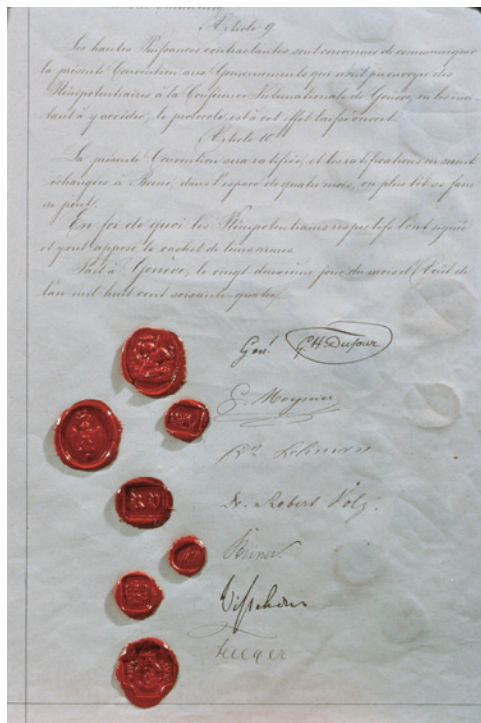 Article 9
Les hautes Puissances contractantes sont convenues de communiquer
la présente Convention aux Gouvernements qui n'ont pu envoyer des
Plénipotentiaires à la Conférence Internationale de Genève, en les invi-
tant à y accéder; le protocole est à cet effet laissé ouvert.
Article 10
La présente Convention sera ratifiée, et les ratifications en seront
échangées à Berne, dans l'espace de quatre mois, ou plus tôt si faire
se peut.
En foi de quoi les Plénipotentiaires respectifs l'ont signée
et y ont apposé le cachet de leurs armes.
Fait à Genève, le vingt deuxième jour du mois d'Août de
l'an mil huit cent soixante-quatre.
Genl. G H Dufour
G. Moynier
Dr Lehmann
Dr. Robert Volz.
Steiner.
Visschers